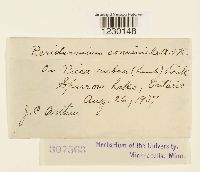 1230148
Peridermium
On Picea rubra (Lamb.) Link
Sparrow Lake, Ontario
Aug. 26, 1907
J. C. Arthur
307363
Herbarium of the University,
Minneapolis, Minn.